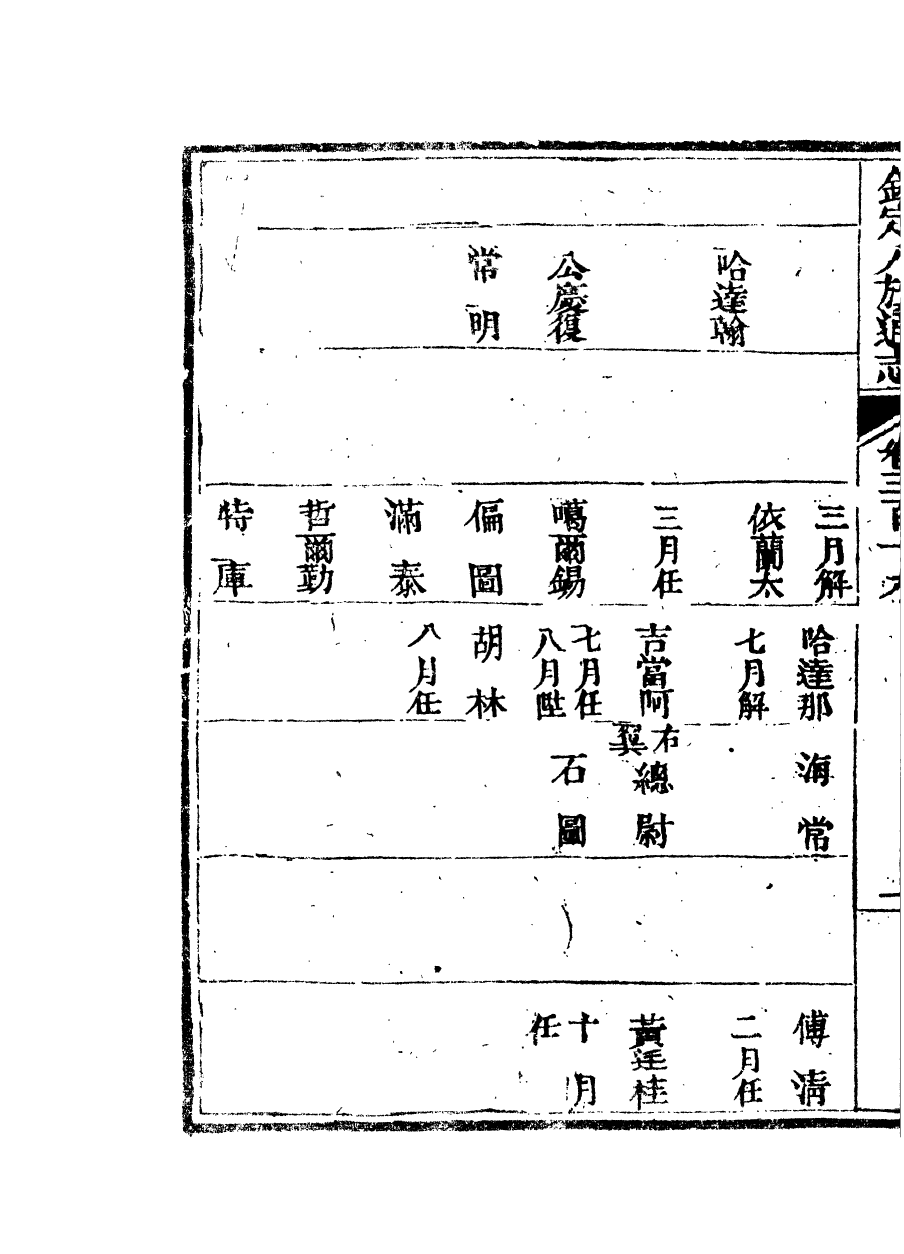 欽定八旗通志
卷三百一
哈達翰
公慶復
常明
三月解
依蘭太
三月任
噶爾錫
偏圖
滿泰
哲爾勤
特庫
哈達那
七月解
吉當阿
七月任
八月陞
胡林
八月任
海常
右翼總尉
石圖
傅清
二月任
黃廷桂
十月
任